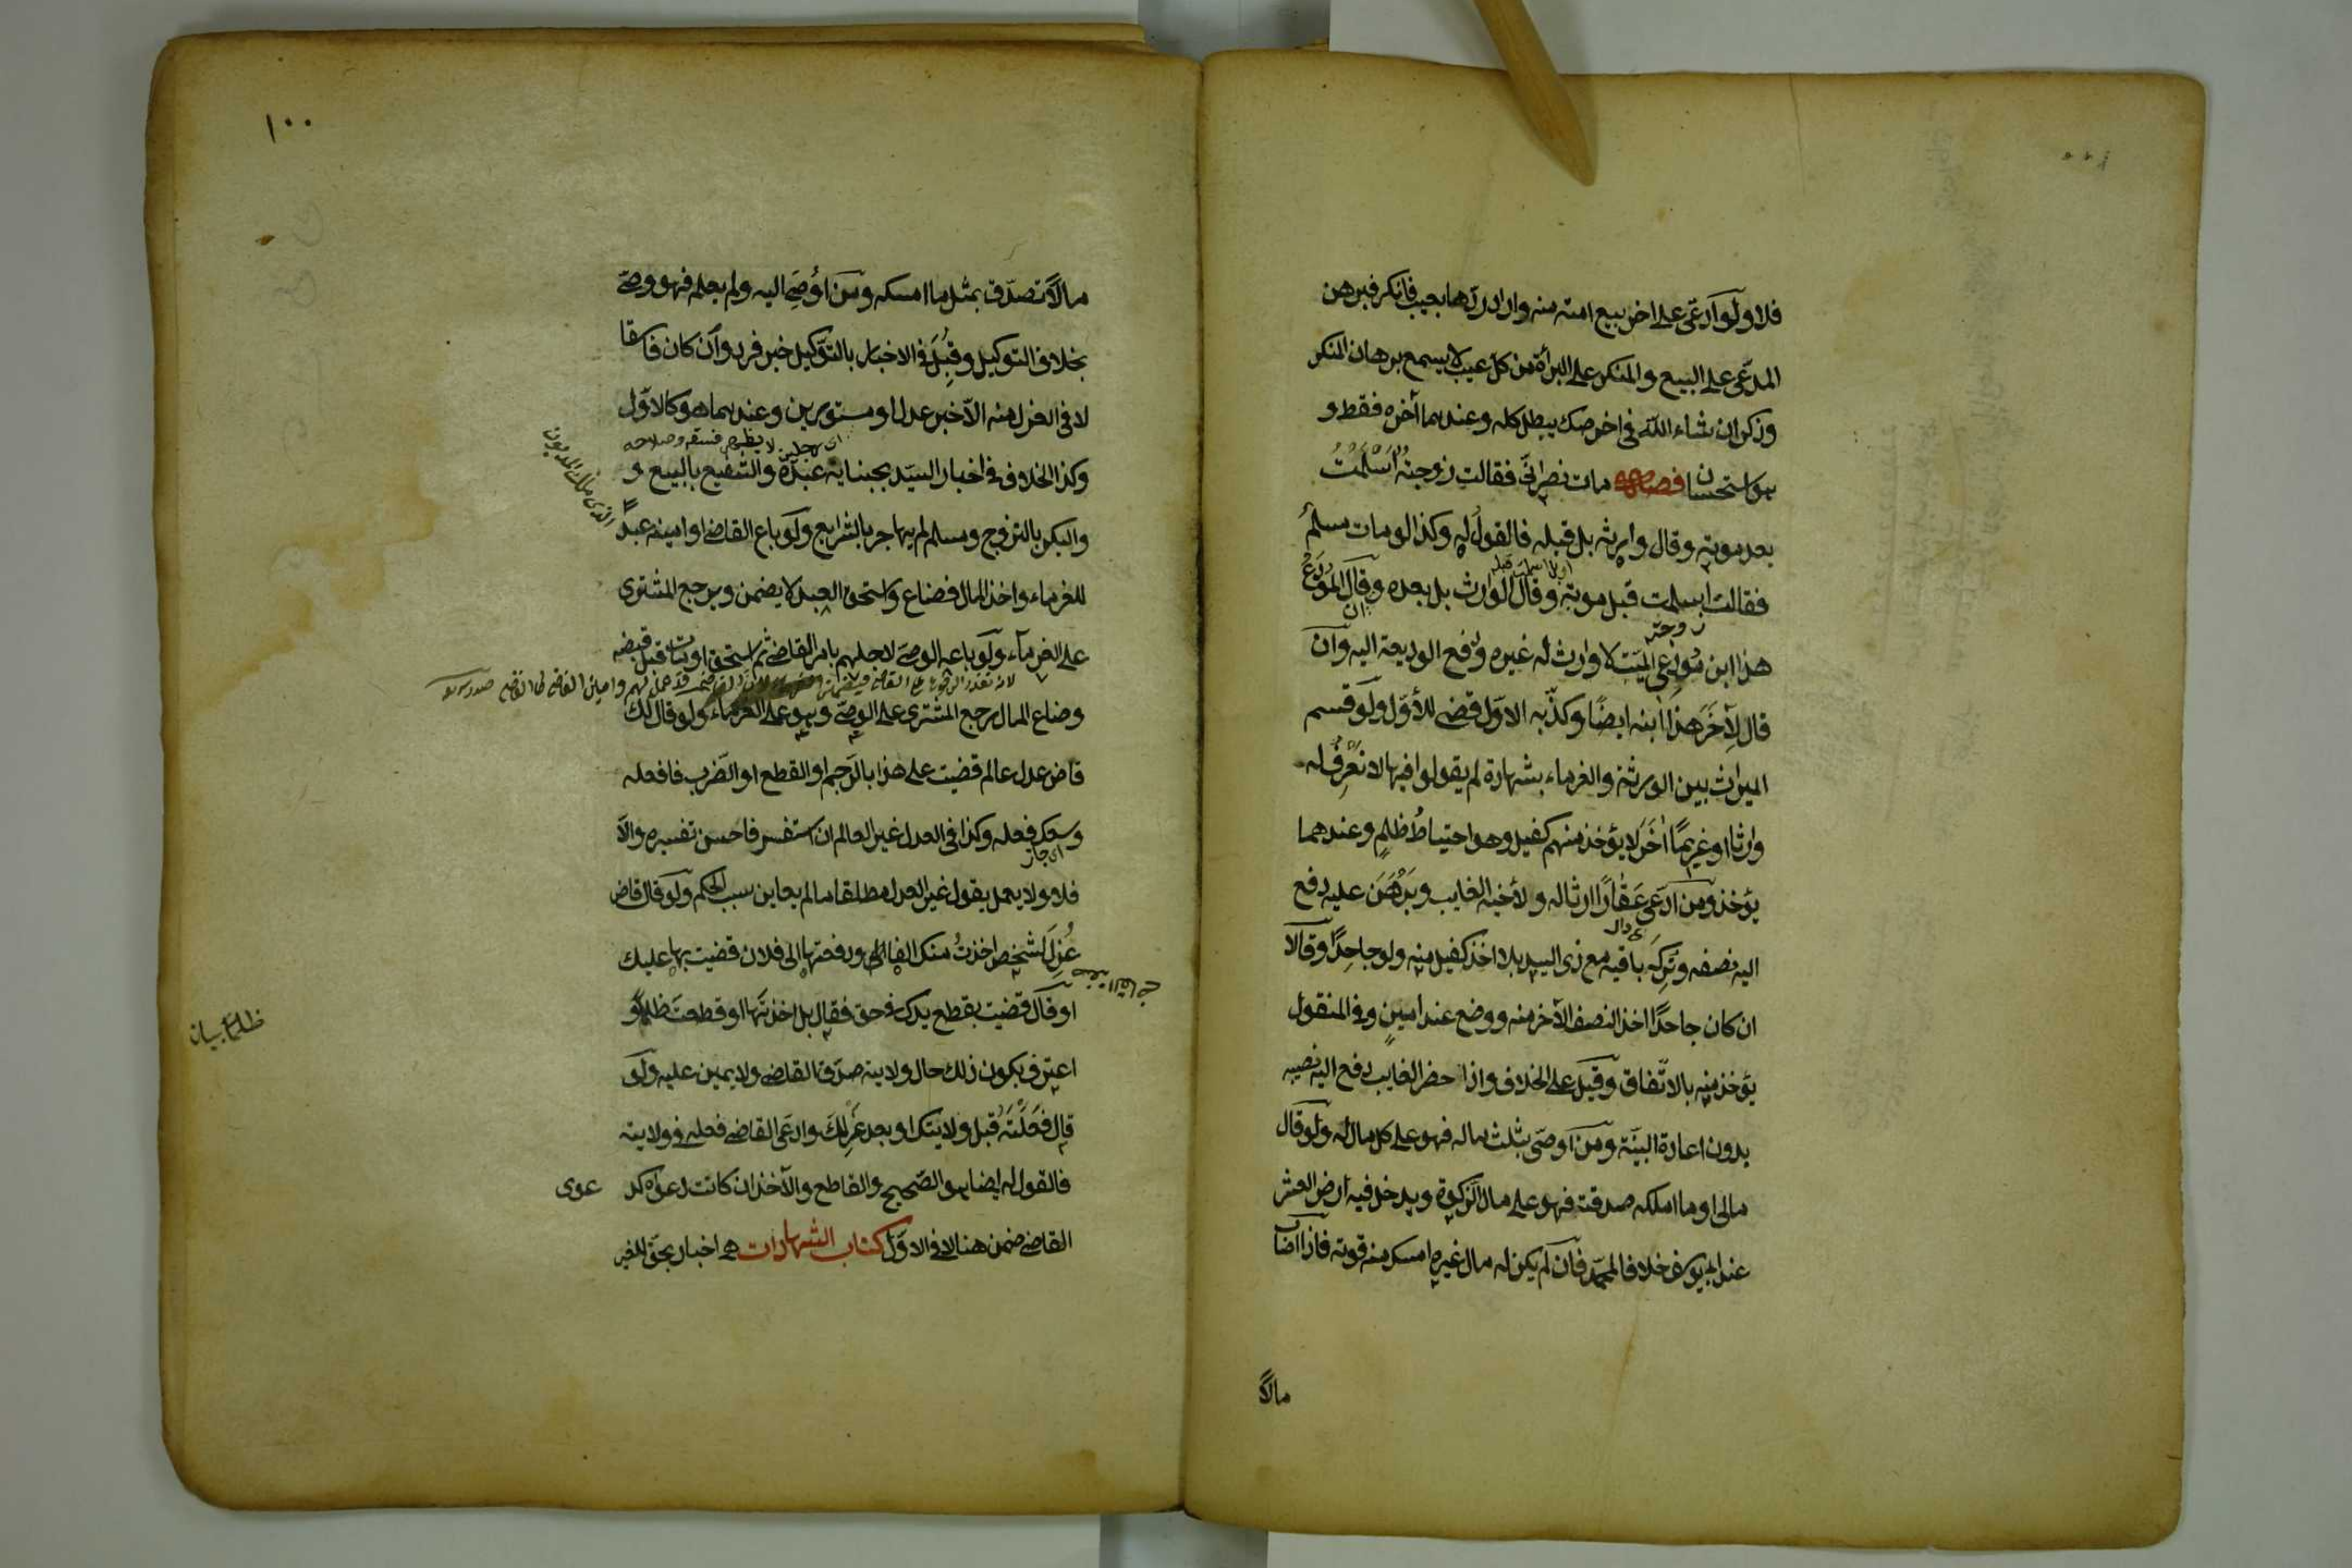 فلا ولو ادّعى على اخر بيع امته منه واراد ردّها بعيب فانكر فبرهن
المدّعى على البيع والمنكر على البراءة من كل عيب لا يسمع برهان المنكر
وذكر ان شاء اللّه فى اخر صك يبطل كله وعندهما آخره فقط و
هو استحسان فصل مات نصرانىّ فقالت زوجته اَسْلَمْتُ
بعد موته وقال وارثه بل قبله فالقول له وكذا لو مات مسلم
فقالت اسلمت قبل موته وقال الوارث بل بعده وقال المودَع ان
زوجته
هذا ابن مُودِعى الميّت لا وارث له غيره دفع الوديعة اليه وان
قال لِآخَرَ هذا ابنه ايضًا وكذّبه الاوّل قضى للأوّل ولو قسم
الميراث بين الورثة والغرماء بشهادة لم يقولوا فيها لا نَعْرِفُ له
وارثا او غريمًا اٰخَرَ لا يؤخذ منهم كفيل وهو احتياطُ ظلمٍ وعندهما
يؤخذ ومن ادّعى عَقَارًا ارثا له ولأخيه الغايب وبَرْهَنَ عليه دفع
اليه نصفه وتُرِكَ باقيه مع ذى اليد بلا اخذ كفيل منه ولو جاحِدًا وقالا
ان كان جاحدًا اخذ النصف الآخر منه ووضع عند امينٍ وفى المنقول
يؤخذ منه بالاتّفاق وقيل على الخلاف واذا حضر الغايب دفع اليه نصيبه
بدون اعادة البيّنة ومن اوصى بثلث ماله فهو على كل مال له ولو قال
مالى او ما املكه صدقة فهو على مال الزكوة ويدخل فيه ارض العشر
عند ابى يوسف خلافا لمحمّد فان لم يكن له مال غيره امسك منه قوته فاذا اصاب
مالاً
١٠٠
مالاً تصدّق بمثل ما امسكه ومن اُوصَى اليه ولم يعلم فهو وصىّ
بخلاف التوكيل وقُبِلَ فى الاخبار بالتوكيل خبر فرد وان كان فاسقا
لا فى العزل منه الّا خبر عدل او مستورين وعندهما هو كالاوّل
اى رجلين لا يظهر فسقه وصلاحه
وكذا الخلاف فى اخبار السيّد بجناية عبده والشفيع بالبيع و
والبكر بالتزوج ومسلم لم يهاجر بالشرايع ولو باع القاضى او امينه عبدً
للغرماء واخذ المال فضاع واستحق العبد لا يضمن ويرجع المشترى
على الغرماء ولو باعه الوصى لاجلهم بامر القاضى ثم استحق او مات قبل قبضه
وضاع المال رجع المشترى على الوصىّ وهو على الغرماء ولو قال لك
قاض عدل عالم قضيت على هذا بالرّجم او القطع او الضّرب فافعله
وسعك فعله وكذا فى العدل غير العالم ان استفسر فاحسن تفسيره والّا
اى جاز
فلا ولا يعمل بقول غير العدل مطلقا ما لم يعاين سبب الحكم ولو قال قاض
عُزِلَ لشخص اخذتُ منك الفا ودفعتها الى فلان قضيت بها عليك
او قال قضيت بقطع يدك فى حق فقال بل اخذتَها او قطعت ظلمًا و
ظلمًا بيان
اعترف بكون ذلك حال ولايته صدّق القاضى ولا يمين عليه ولو
قال فَعَلْتَهُ قبل ولايتك او بعد عَزْلِكَ وادعى القاضى فعله فى ولايته
فالقول له ايضا هو الصّحيح والقاطع والآخذ ان كانت دعواه كد عوى
القاضى ضمن هنا لا فى الاوّل كتاب الشهادات هى اخبار بحق للغير